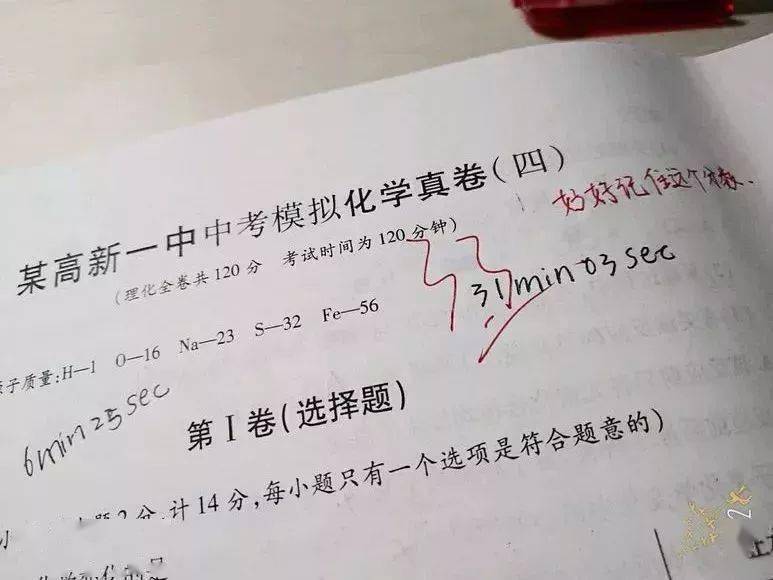 某高新一中中考模拟化学真卷(四)
好好记住这个分数.
(理化全卷共120分 考试时间为120分钟)
31min 03 sec
子质量:H—1 O—16 Na—23 S—32 Fe—56
6min 25 sec
第Ⅰ卷(选择题)
2分,计14分,每小题只有一个选项是符合题意的)